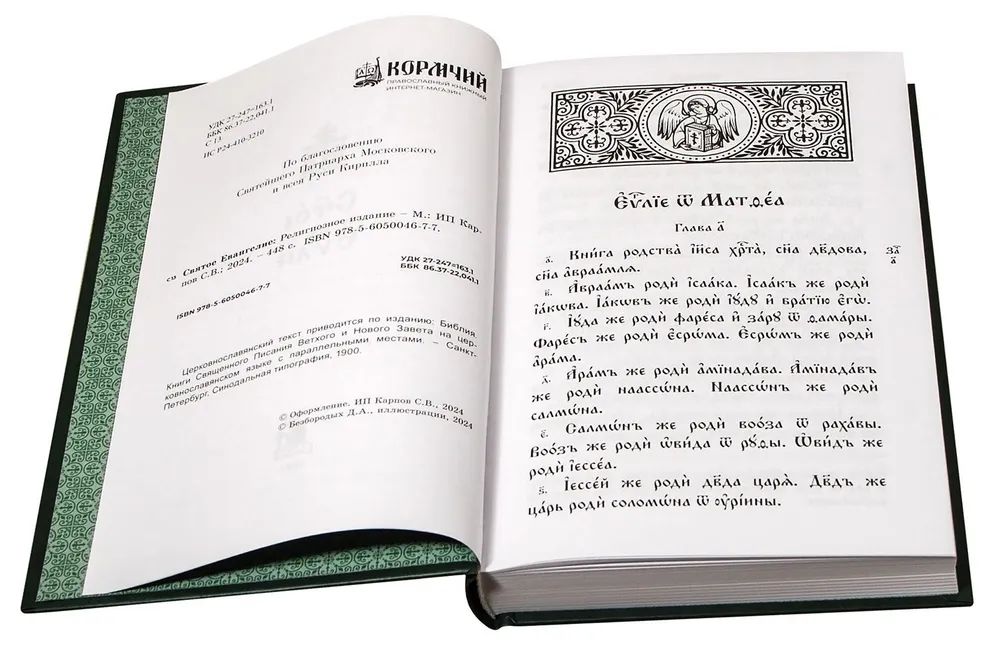 КОРМЧИЙ
ПРАВОСЛАВНЫЙ КНИЖНЫЙ
ИНТЕРНЕТ-МАГАЗИН
УДК 27-247=163.1
ББК 86.37-22,041.1
С 13
ИС Р24-410-3210
По благословению
Святейшего Патриарха Московского
и всея Руси Кирилла
Святое Евангелие: Религиозное издание – М.: ИП Кар-
сн пов С.В.; 2024. – 448 с. ISBN 978-5-6050046-7-7.
УДК 27-247=163.1
ББК 86.37-22,041.1
ISBN 978-5-6050046-7-7
Церковнославянский текст приводится по изданию: Библия.
Книги Священного Писания Ветхого и Нового Завета на цер-
ковнославянском языке с параллельными местами. – Санкт-
Петербург. Синодальная типография, 1900.
© Оформление. ИП Карпов С.В., 2024
© Безбородых Д.А., иллюстрации, 2024
Є҆ѵⷢ҇лїе ѿ Матѳе́а
Глава а҃
а҃. Кни́га родства̀ і҆и҃са хрⷭ҇та̀, сн҃а дв҃дова, за҃
сн҃а а҆враа́млѧ. а҃
в҃. А҆враа́мъ родѝ і҆саа́ка. І҆саа́къ же родѝ
і҆а́кѡва. І҆а́кѡвъ же родѝ і҆ꙋ́дꙋ и҆ бра́тїю є҆гѡ̀.
г҃. І҆ꙋ́да же родѝ фаре́са и҆ за́рꙋ ѿ ѳама́ры.
Фаре́съ же родѝ є҆срѡ́ма. Є҆срѡ́мъ же родѝ
а҆ра́ма.
д҃. А҆ра́мъ же родѝ а҆мїнада́ва. А҆мїнада́въ
же родѝ наассѡ́на. Наассѡ́нъ же родѝ
салмѡ́на.
є҃. Салмѡ́нъ же родѝ воо́за ѿ раха́вы.
Воо́зъ же родѝ ѡ҆ви́да ѿ рꙋ́ѳы. Ѡ҆ви́дъ же
родѝ і҆ессе́а.
ѕ҃. І҆ессе́й же родѝ дв҃да царѧ̀. Дв҃дъ же
ца́рь родѝ соломѡ́на ѿ ᲂу҆рі́ины.